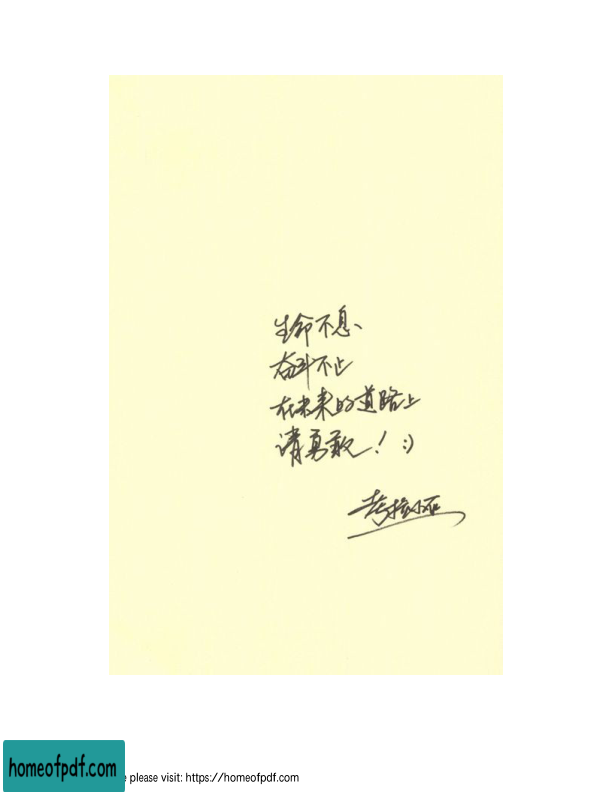 生命不息、
奋斗不止
在未来的道路上
请勇敢！:)
考拉小巫
homeofpdf.com
e please visit: https://homeofpdf.com